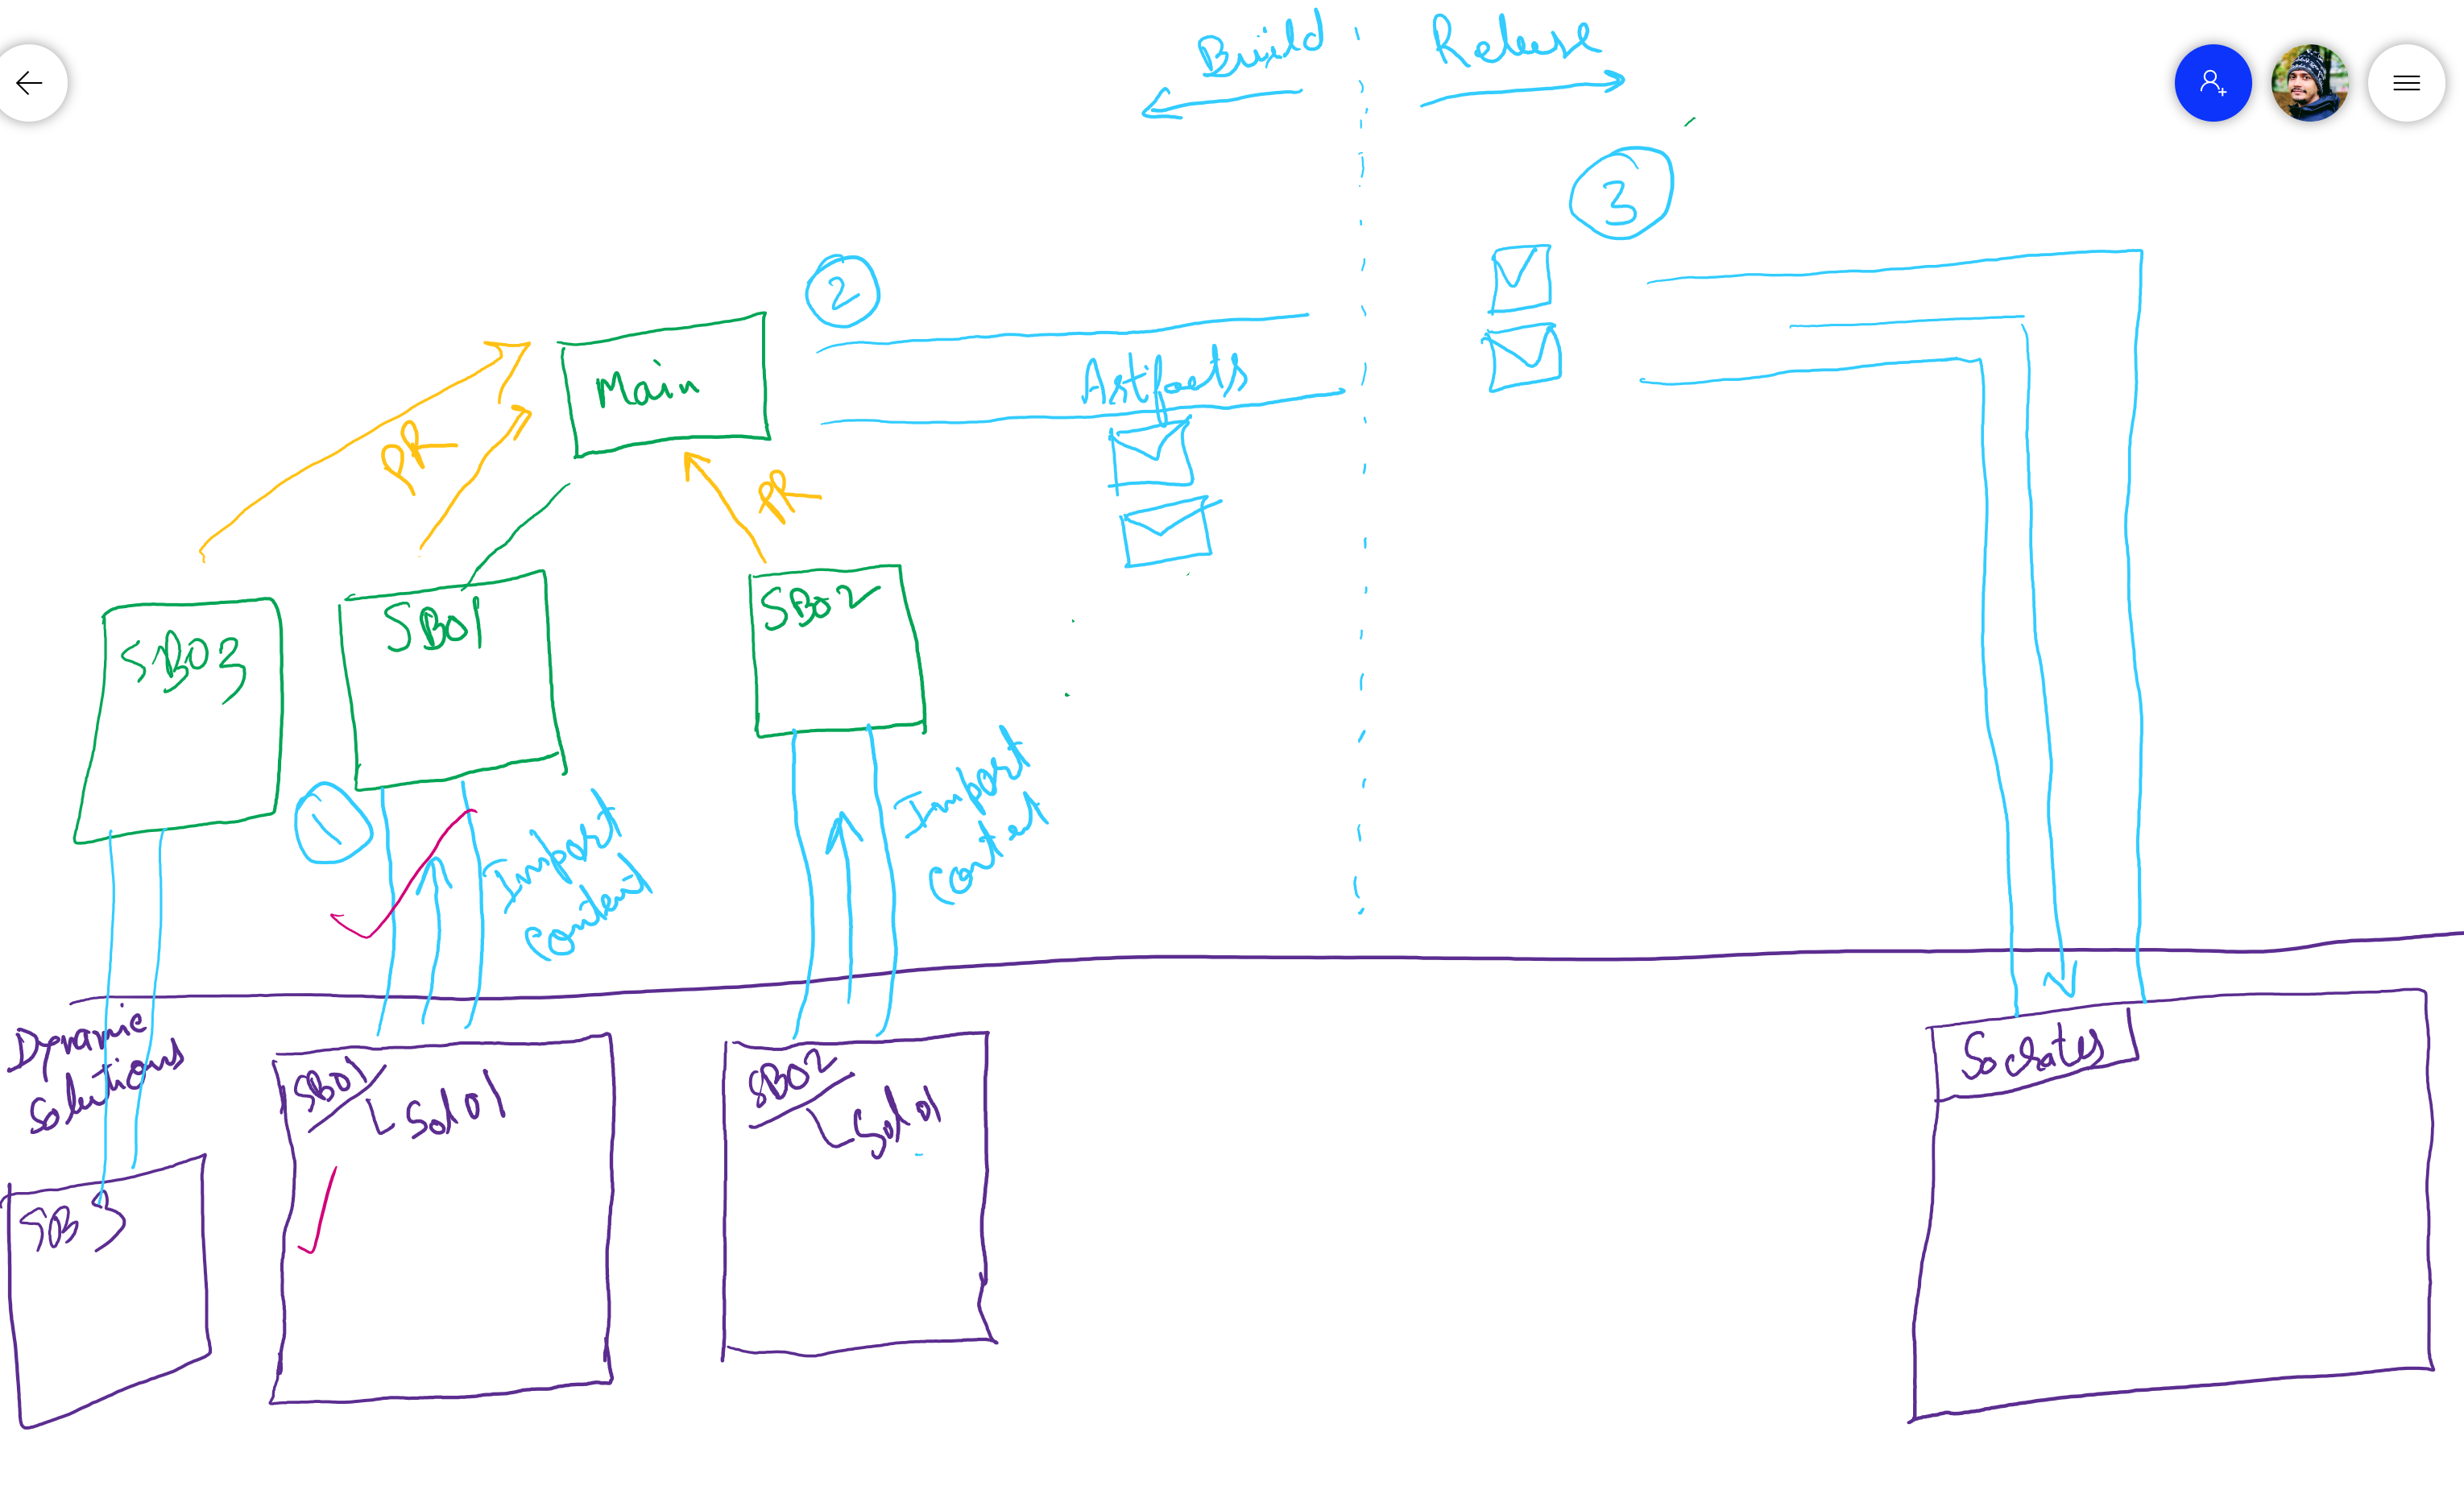 Build
Release
3
2
Main
Artifacts
PR
PR
SB03
SB01
SB02
1
Import
Content
Import
Content
Dynamic
Solutions
SB01
Sol 01
SB02
Sol 01
SB3